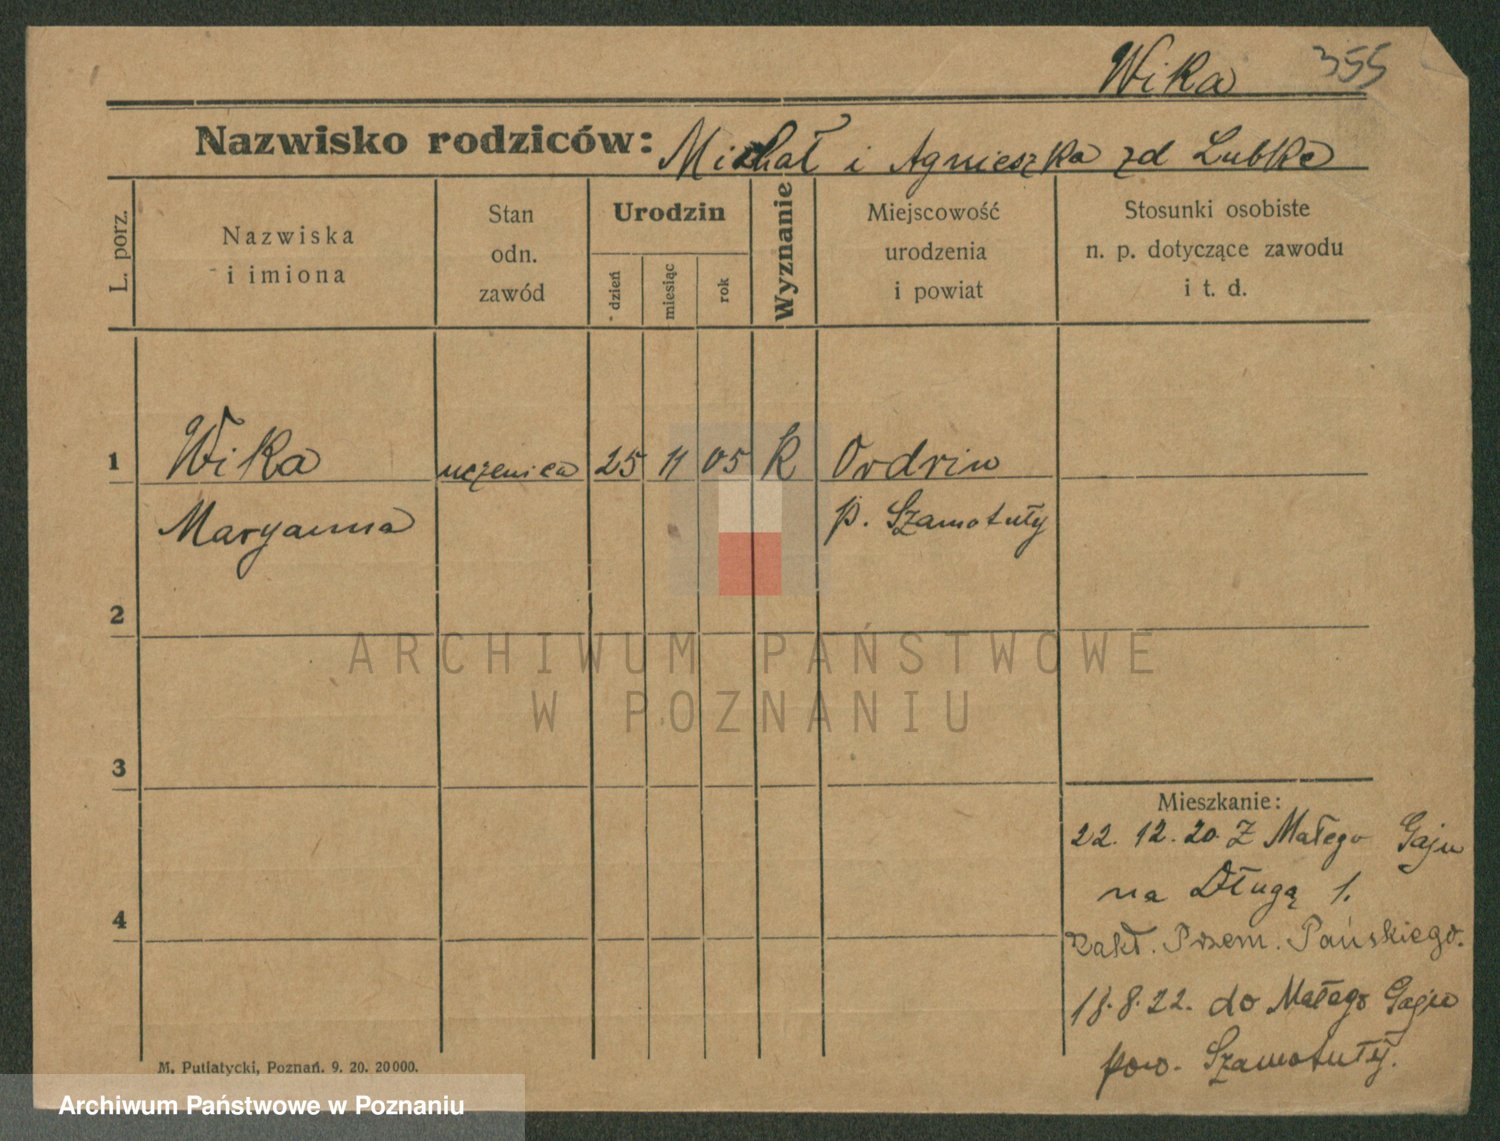 Wika 355
Nazwisko rodziców: Michał i Agnieszka zd Lubka
L. porz.
Nazwiska
i imiona
Stan
odn.
zawód
Urodzin
dzień
miesiąc
rok
Wyznanie
Miejscowość
urodzenia
i powiat
Stosunki osobiste
n. p. dotyczące zawodu
i t. d.
1 Wika uczenica 25 11 05 K Ordzin
Maryanna p. Szamotuły
2
ARCHIWUM PAŃSTWOWE
W POZNANIU
3
Mieszkanie:
22. 12. 20. Z Małego Gaju
na Długą 1.
4
Zakł. Przem. Pańskiego.
18. 8. 22. do Małego Gaju
pow. Szamotuły.
M. Putiatycki, Poznań. 9. 20. 20000.
Archiwum Państwowe w Poznaniu